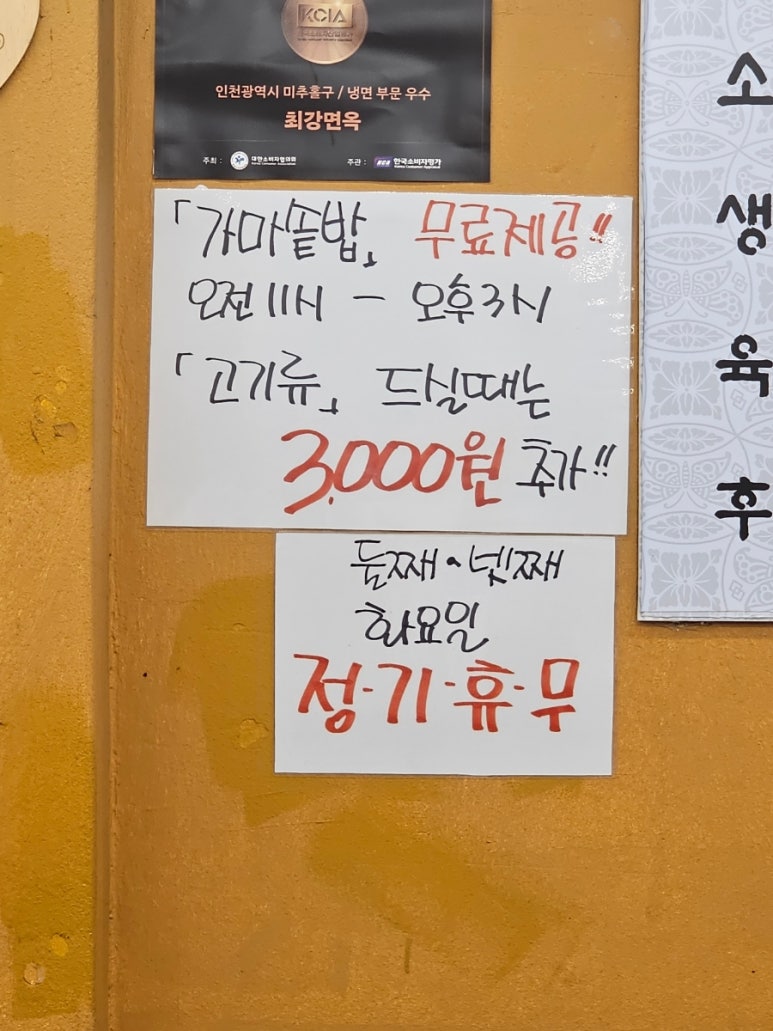 KCIA
인천광역시 미추홀구 / 냉면 부문 우수
최강면옥
주최 : 대한소비자협의회 주관 : KCA 한국소비자평가
「가마솥밥」 무료제공!!
오전 11시 – 오후 3시
「고기류」 드실때는
3,000원 추가!!
둘째·넷째
화요일
정·기·휴·무
소
생
육
후